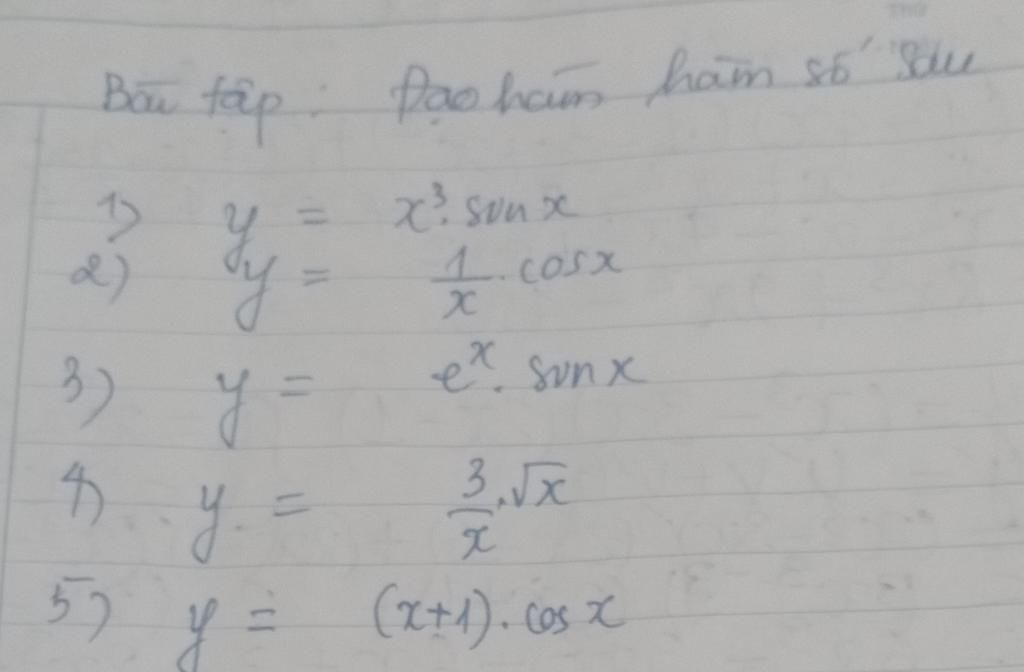 Bài tập : Đạo hàm hàm số sau
1) y = x³. sin x
2) y = 1/x . cosx
3) y = eˣ. sin x
4) y = 3/x . √x
5) y = (x+1). cos x